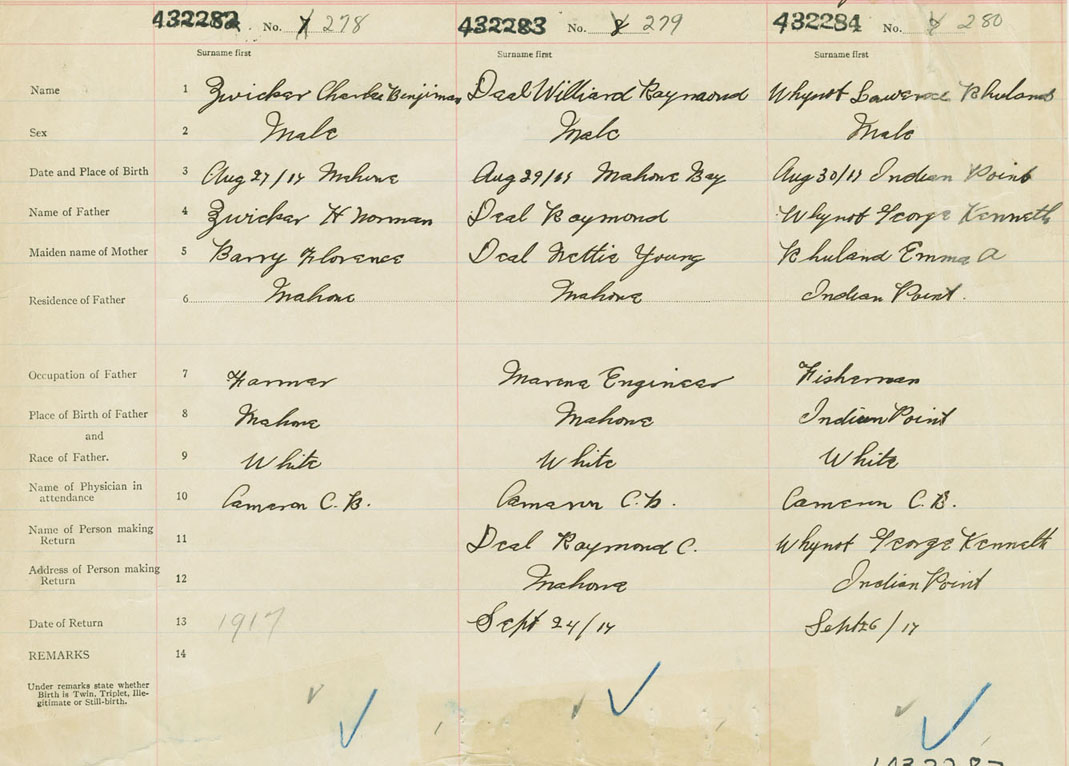 432282 No. 7 278 432283 No. 8 279 432284 No. 9 280
Surname first Surname first Surname first
Name 1 Zwicker Charlie Benjiman Deal Williard Raymond Whynot Lawrence Rhuland
Sex 2 Male Male Male
Date and Place of Birth 3 Aug 27/17 Mahone Aug 29/17 Mahone Bay Aug 30/17 Indian Point
Name of Father 4 Zwicker H Norman Deal Raymond Whynot George Kenneth
Maiden name of Mother 5 Barry Florence Deal Nettie Young Rhuland Emma A
Residence of Father 6 Mahone Mahone Indian Point.
Occupation of Father 7 Farmer Marene Engineer Fisherman
Place of Birth of Father 8 Mahone Mahone Indian Point
and
Race of Father. 9 White White White
Name of Physician in
attendance 10 Cameron C. B. Cameron C. B. Cameron C. B.
Name of Person making
Return 11 Deal Raymond C. Whynot George Kenneth
Address of Person making
Return 12 Mahone Indian Point
Date of Return 13 1917 Sept 24/17 Sept 26/17
REMARKS 14
Under remarks state whether
Birth is Twin, Triplet, Ille-
gitimate or Still-birth.